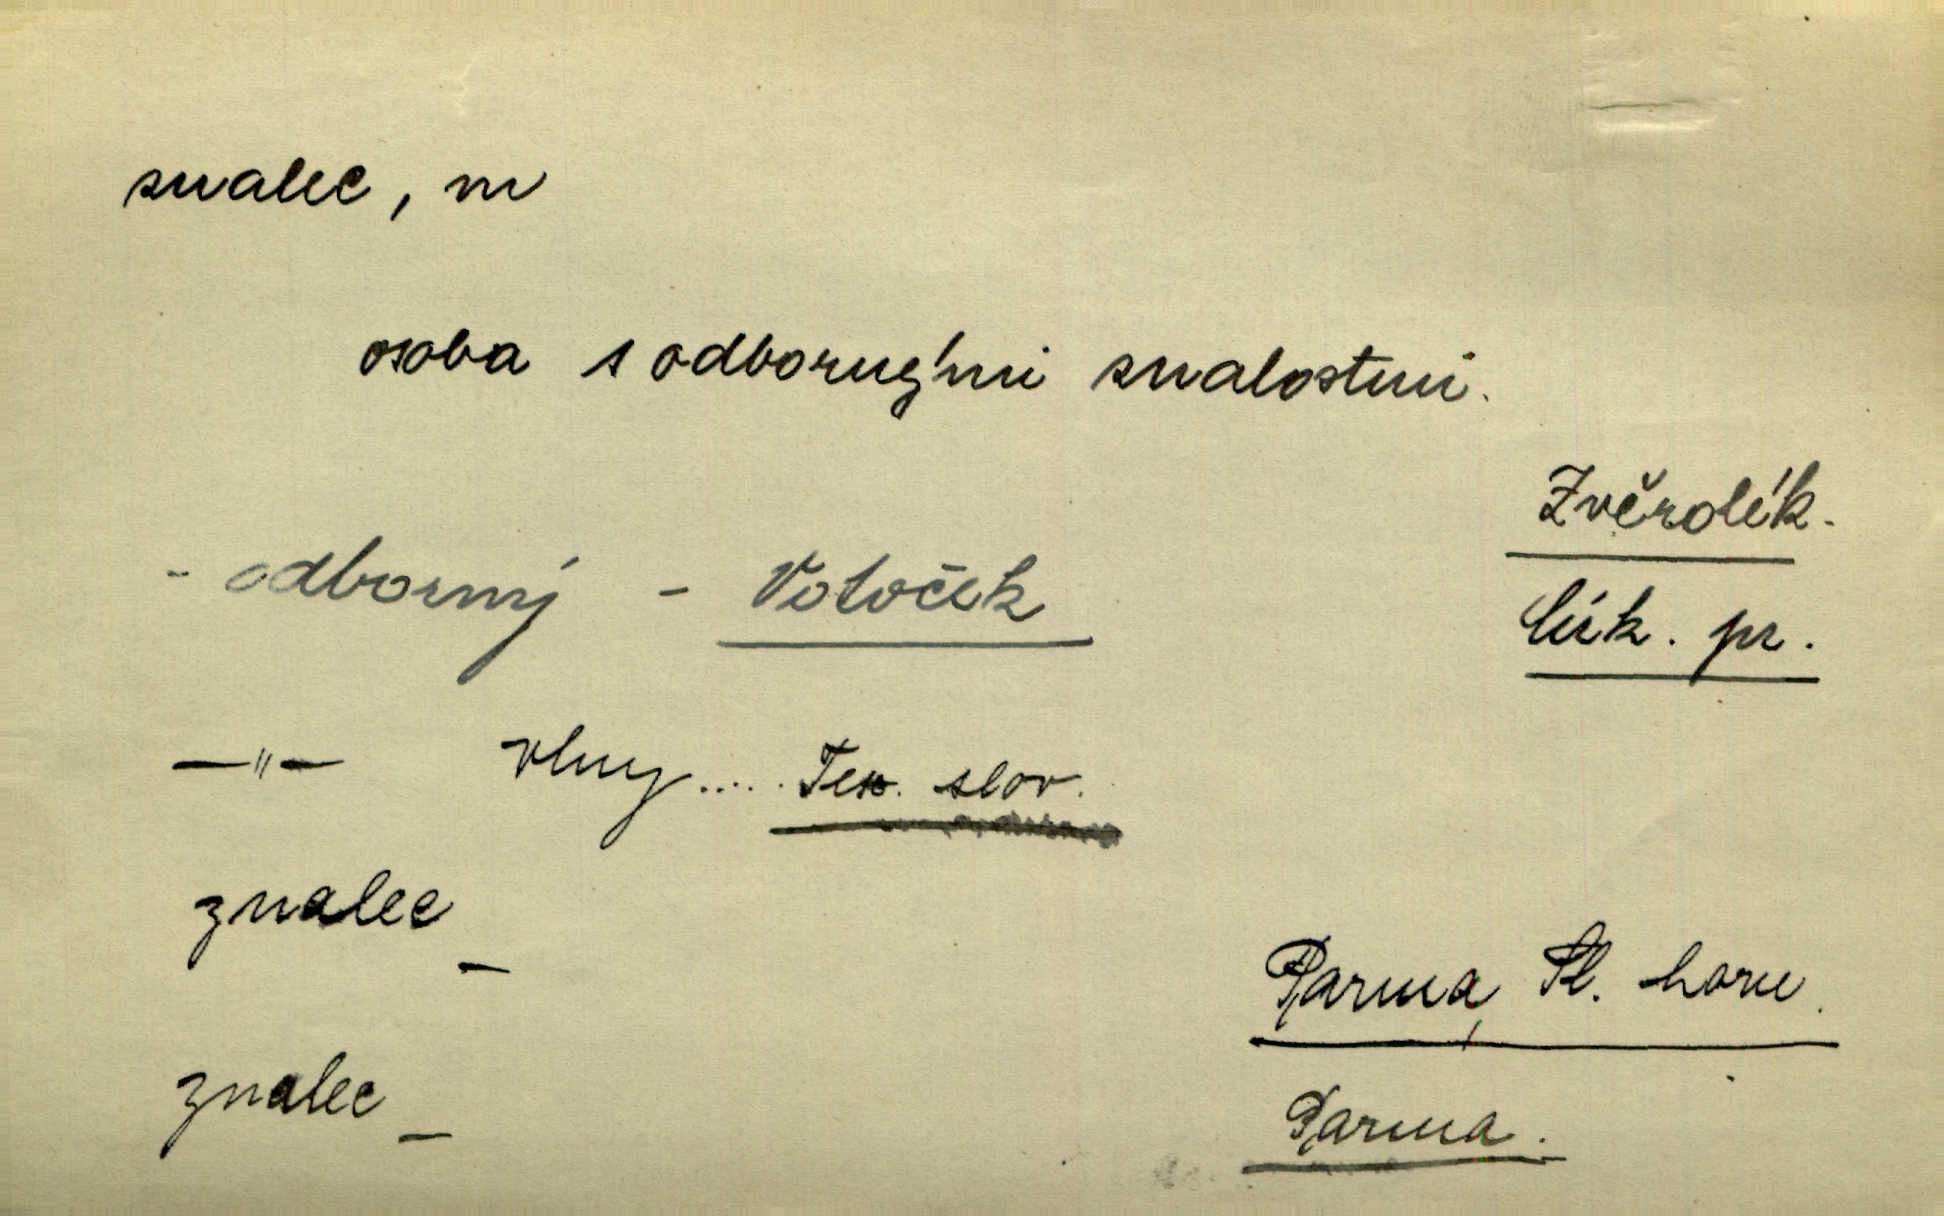 znalec, m
osoba s odbornými znalostmi.
Zvěrolék.
- odborný - Votoček
lúk. pr.
—"— vlny..... Tex. slov.
znalec –
Parma, Sl. horu.
znalec –
Parma.